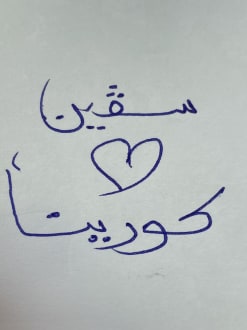 سڤين
كوريتا